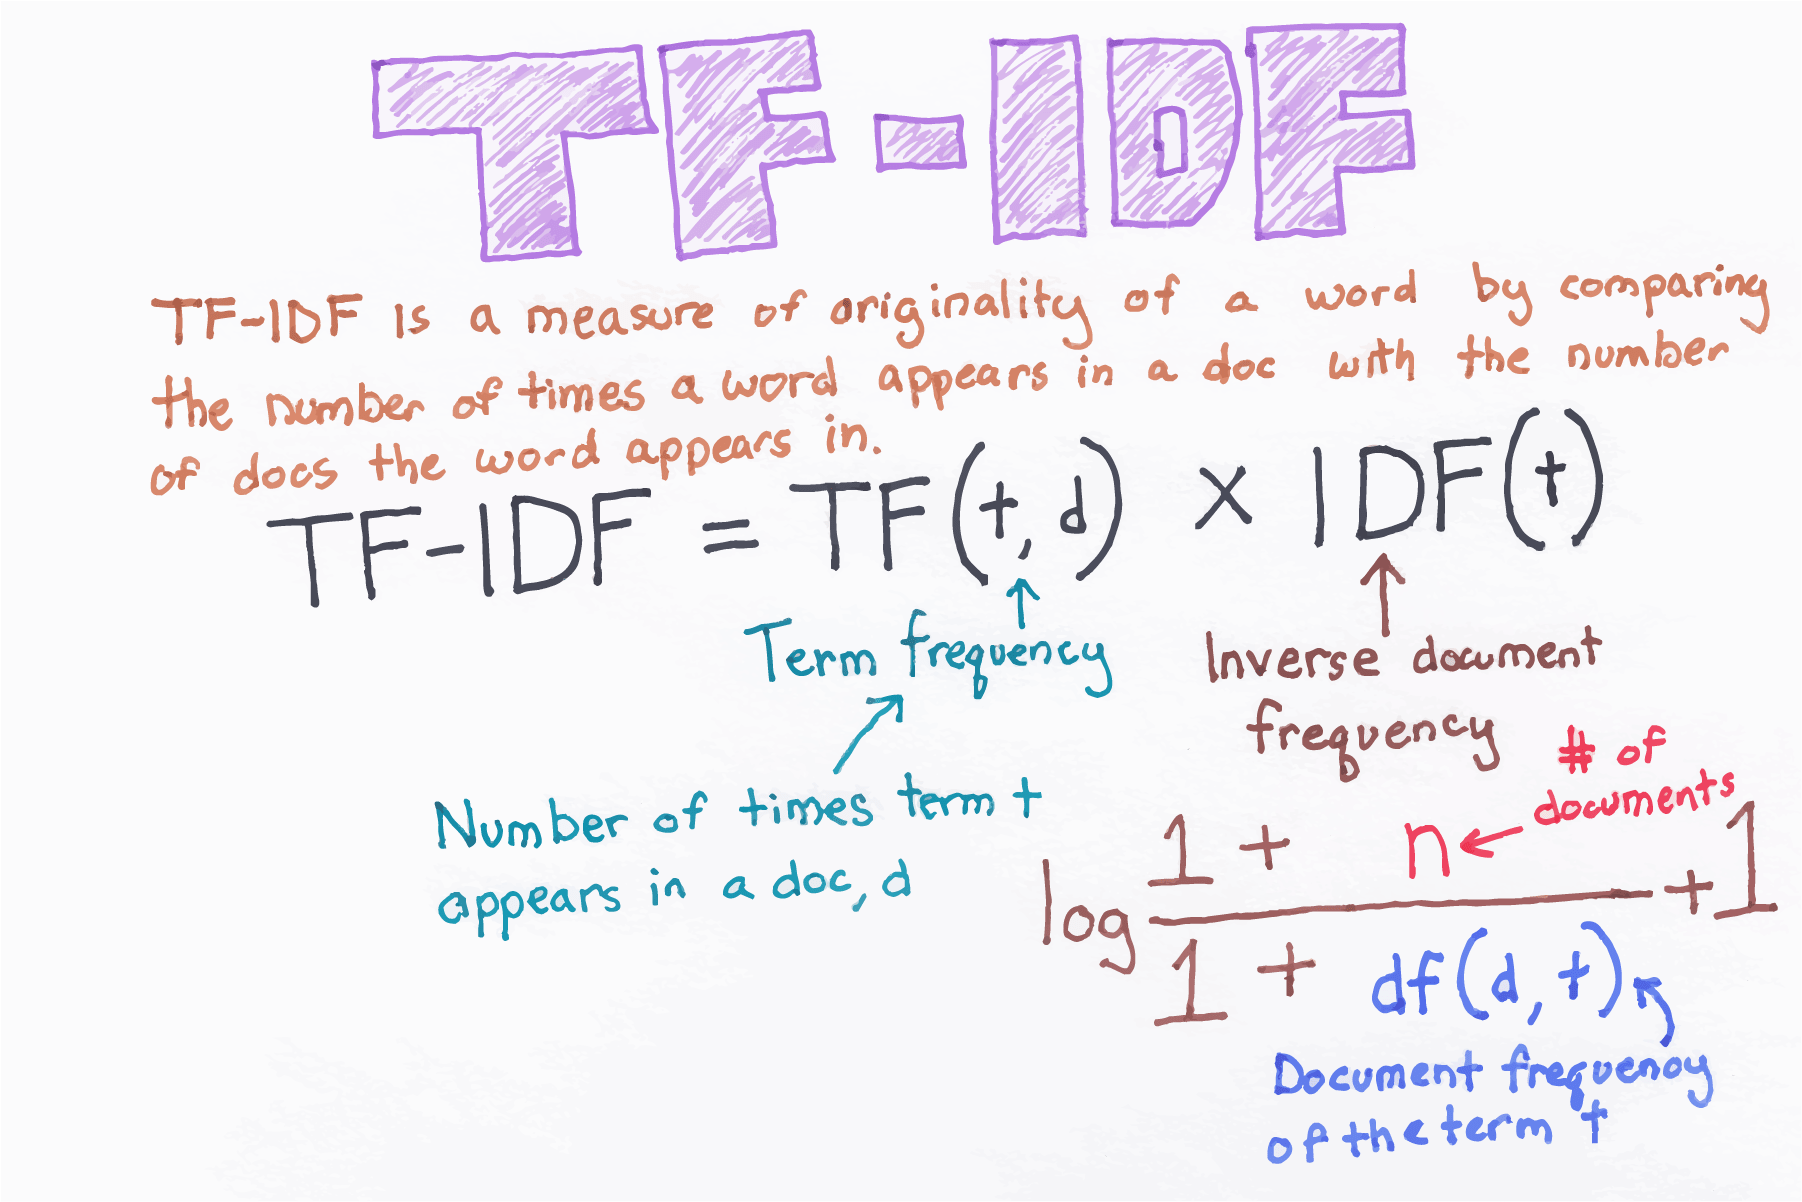 TF-IDF
TF-IDF is a measure of originality of a word by comparing
the number of times a word appears in a doc with the number
of docs the word appears in.
TF-IDF = TF(t, d) x IDF(t)
Term frequency
Inverse document
frequency
Number of times term t
appears in a doc, d
# of
documents
log 1 + n + 1
1 + df(d, t)
Document frequency
of the term t